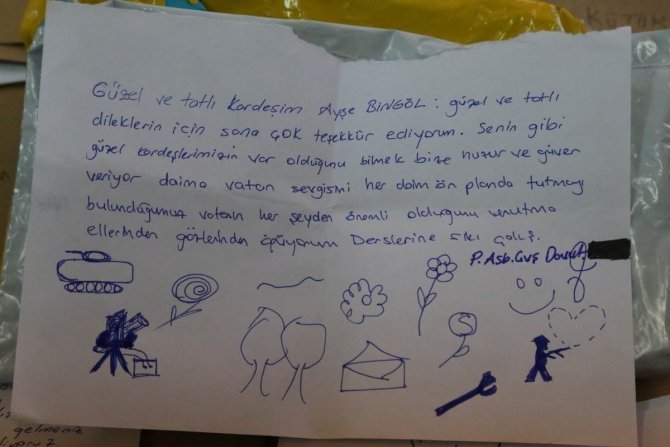 Güzel ve tatlı kardeşim Ayşe BİNGÖL : güzel ve tatlı
dileklerin için sana ÇOK teşekkür ediyorum. Senin gibi
güzel kardeşlerimizin var olduğunu bilmek bize huzur ve güven
veriyor daima vatan sevgisini her daim ön planda tutmayı
bulunduğumuz vatanın her şeyden önemli olduğunu unutma
ellerinden gözlerinden öpüyorum Derslerine sıkı çalış.
P. Asb. Çvş
gelmeniz